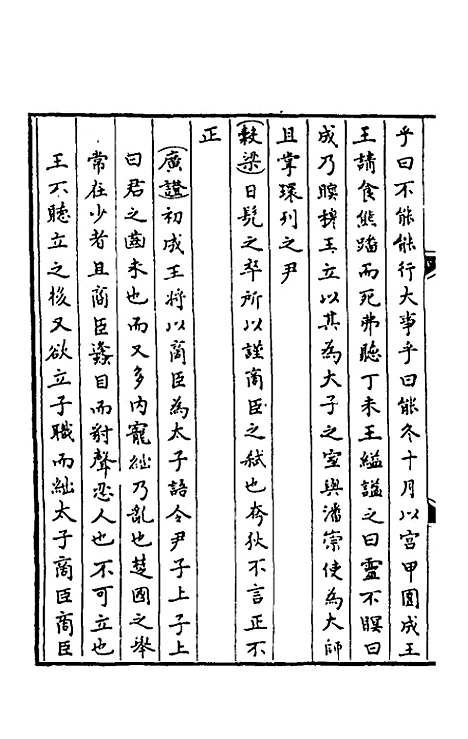 乎曰不能能行大事乎曰能冬十月以宮甲圍成王
王請食熊蹯而死弗聽丁未王縊諡之曰靈不瞑曰
成乃瞑穆王立以其為大子之室與潘崇使為大師
且掌環列之尹
糓梁日髡之卒所以謹商臣之弑也夷狄不言正不
正
廣證初成王將以商臣為太子語令尹子上子上
曰君之齒未也而又多內寵絀乃亂也楚國之舉
常在少者且商臣蠭目而豺聲忍人也不可立也
王不聽立之後又欲立子職而絀太子商臣商臣